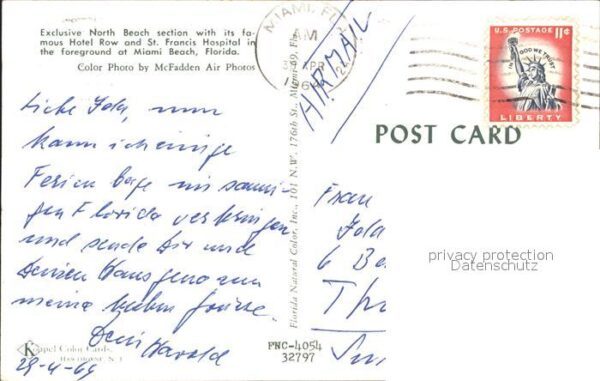 Exclusive North Beach section with its fa-
mous Hotel Row and St. Francis Hospital in
the foreground at Miami Beach, Florida.
Color Photo by McFadden Air Photos
MIAMI, FL
AM
APR
AIRMAIL
U.S. POSTAGE 11¢
IN GOD WE TRUST
LIBERTY
POST CARD
Liebe Jola, nun
kann ich einige
Ferientage im sonni-
gen Florida verbringen
und sende Dir und
Deinen Hausgenossen
meine lieben Grüsse.
Dein Harald
29-4-64
Florida Natural Color, Inc., 101 N.W. 176th St., Miami 69, Fla.
Frau
Jola
6
privacy protection
Datenschutz
Koppel Color Cards
HAWTHORNE, N. J.
FNC-4054
32797